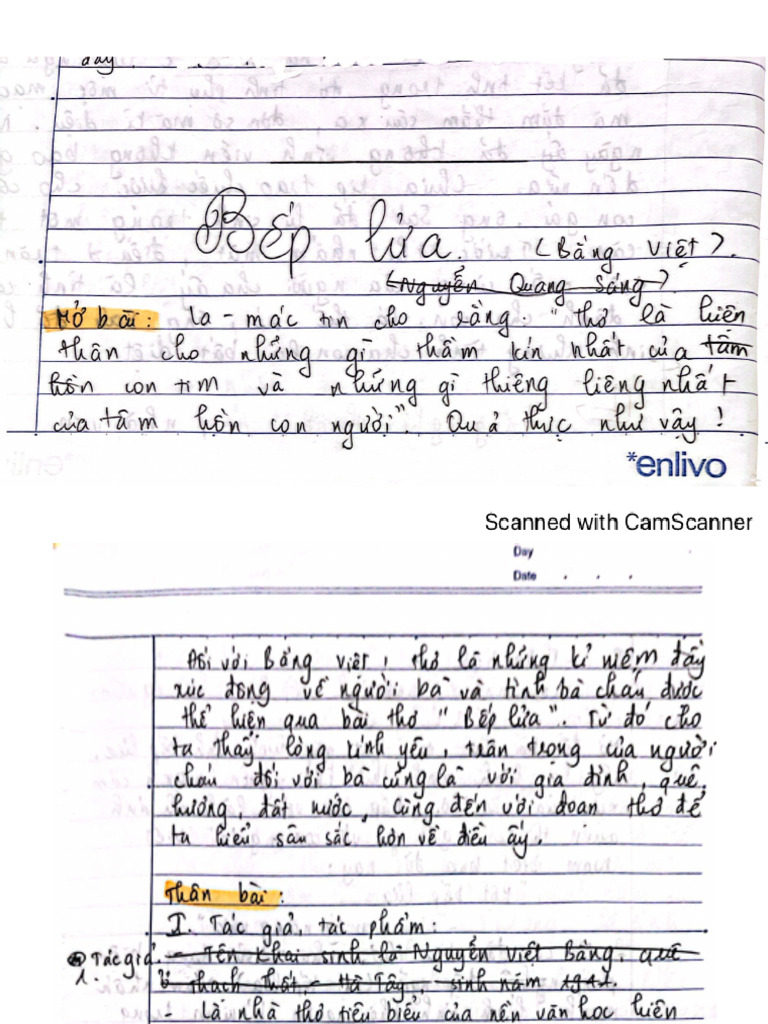 đây
Bếp lửa. (Bằng Việt).
(Nguyễn Quang Sáng)
Mở bài: La-mác tin cho rằng. "thơ là hiện
thân cho những gì thầm kín nhất của tâm
hồn con tim và những gì thiêng liêng nhất
của tâm hồn con người". Quả thực như vậy!
*enlivo
Scanned with CamScanner
Day
Date . . .
Đối với Bằng Việt, thơ là những kỉ niệm đầy
xúc động về người bà và tình bà cháu được
thể hiện qua bài thơ "Bếp lửa". Từ đó cho
ta thấy lòng kính yêu, trân trọng của người
cháu đối với bà cũng là với gia đình, quê
hương, đất nước, cùng đến với đoạn thơ để
ta hiểu sâu sắc hơn về điều ấy.
Thân bài:
I. Tác giả tác phẩm:
Tác giả. - Tên khai sinh là Nguyễn Việt Bằng, quê
1. ở Thạch Thất - Hà Tây, sinh năm 1941.
- Là nhà thơ tiêu biểu của nền văn học hiện